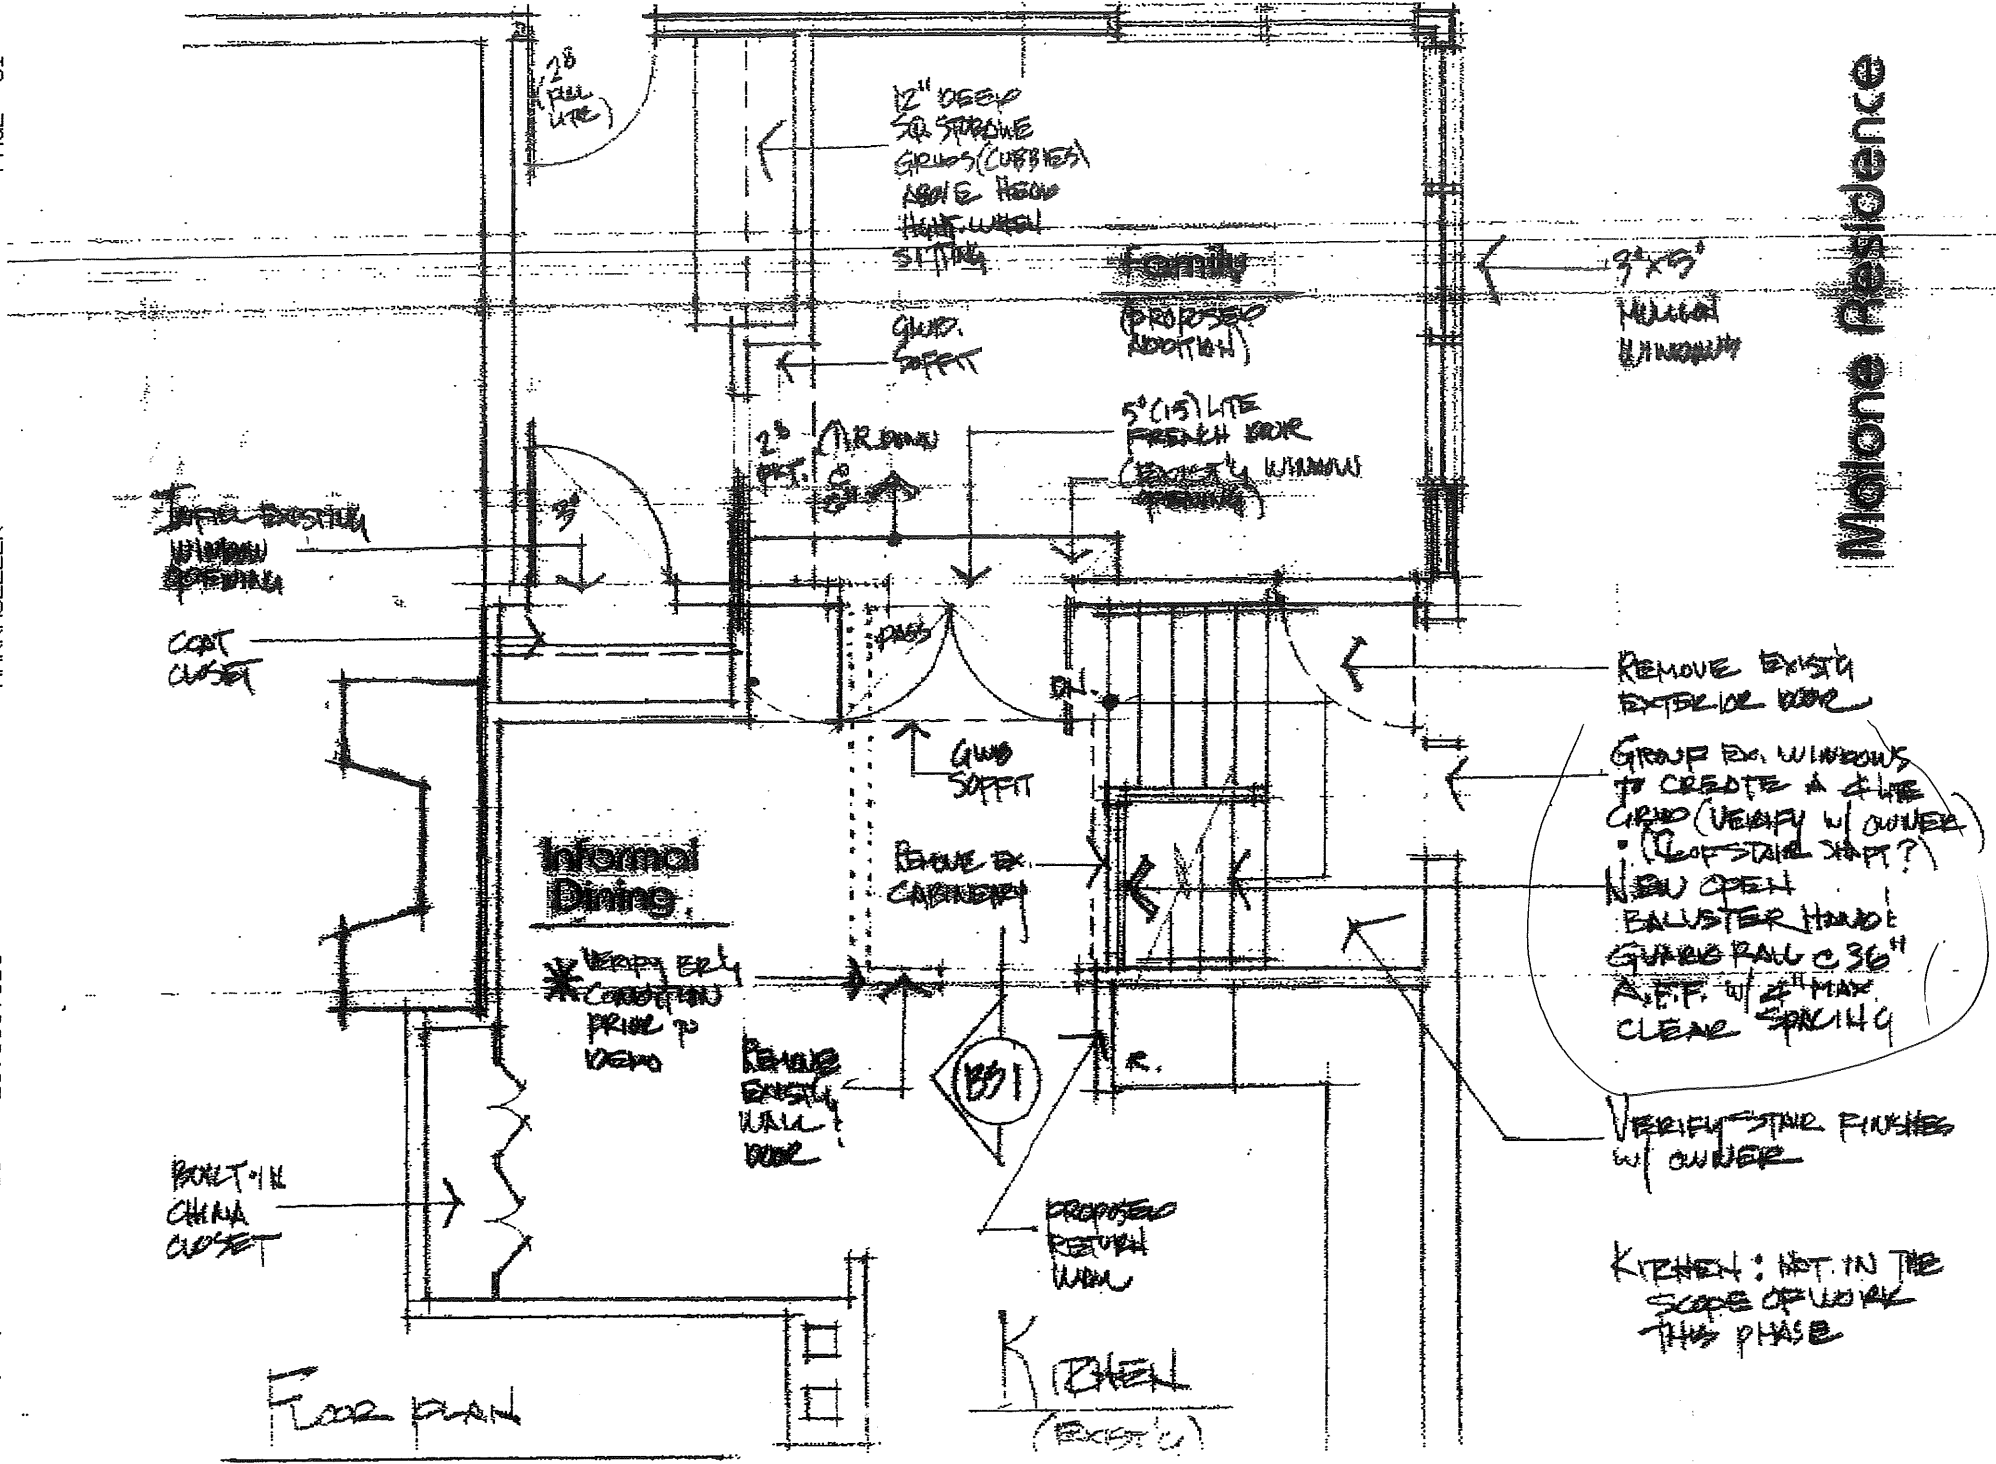 2⁸
(FULL
LITE)
12" DEEP
SQ. STORAGE
GRIDS (CUBBIES)
ABOVE HEAD
HGHT. WHEN
SITTING
Family
(PROPOSED
ADDITION)
GWB.
SOFFIT
3⁰ x 5⁰
MULLION
WINDOWS
Malone Residence
5⁰ (15) LITE
FRENCH DOOR
(EXIST'G WINDOW
OPENING)
2⁸
PKT.
1 R DOWN
@
6"
3⁰
INFILL EXISTING
WINDOW
OPENING
COAT
CLOSET
PASS
DN.
REMOVE EXIST'G
EXTERIOR DOOR
GWB
SOFFIT
GROUP EX. WINDOWS
TO CREATE A 4 LITE
GRID (VERIFY W/ OWNER)
OF STAIR SHAFT?)
NEW OPEN
BALUSTER HAND &
GUARD RAIL @ 36"
A.F.F. W/ 4" MAX.
CLEAR SPACING
REMOVE EX.
CABINETRY
Informal
Dining
VERIFY BR'G
CONDITION
PRIOR TO
DEMO
REMOVE
EXIST'G
WALL &
DOOR
BS1
R.
VERIFY STAIR FINISHES
W/ OWNER
BUILT-IN
CHINA
CLOSET
PROPOSED
RETURN
WALL
KITCHEN: NOT IN THE
SCOPE OF WORK
THIS PHASE
KITCHEN
(EXIST'G)
FLOOR PLAN